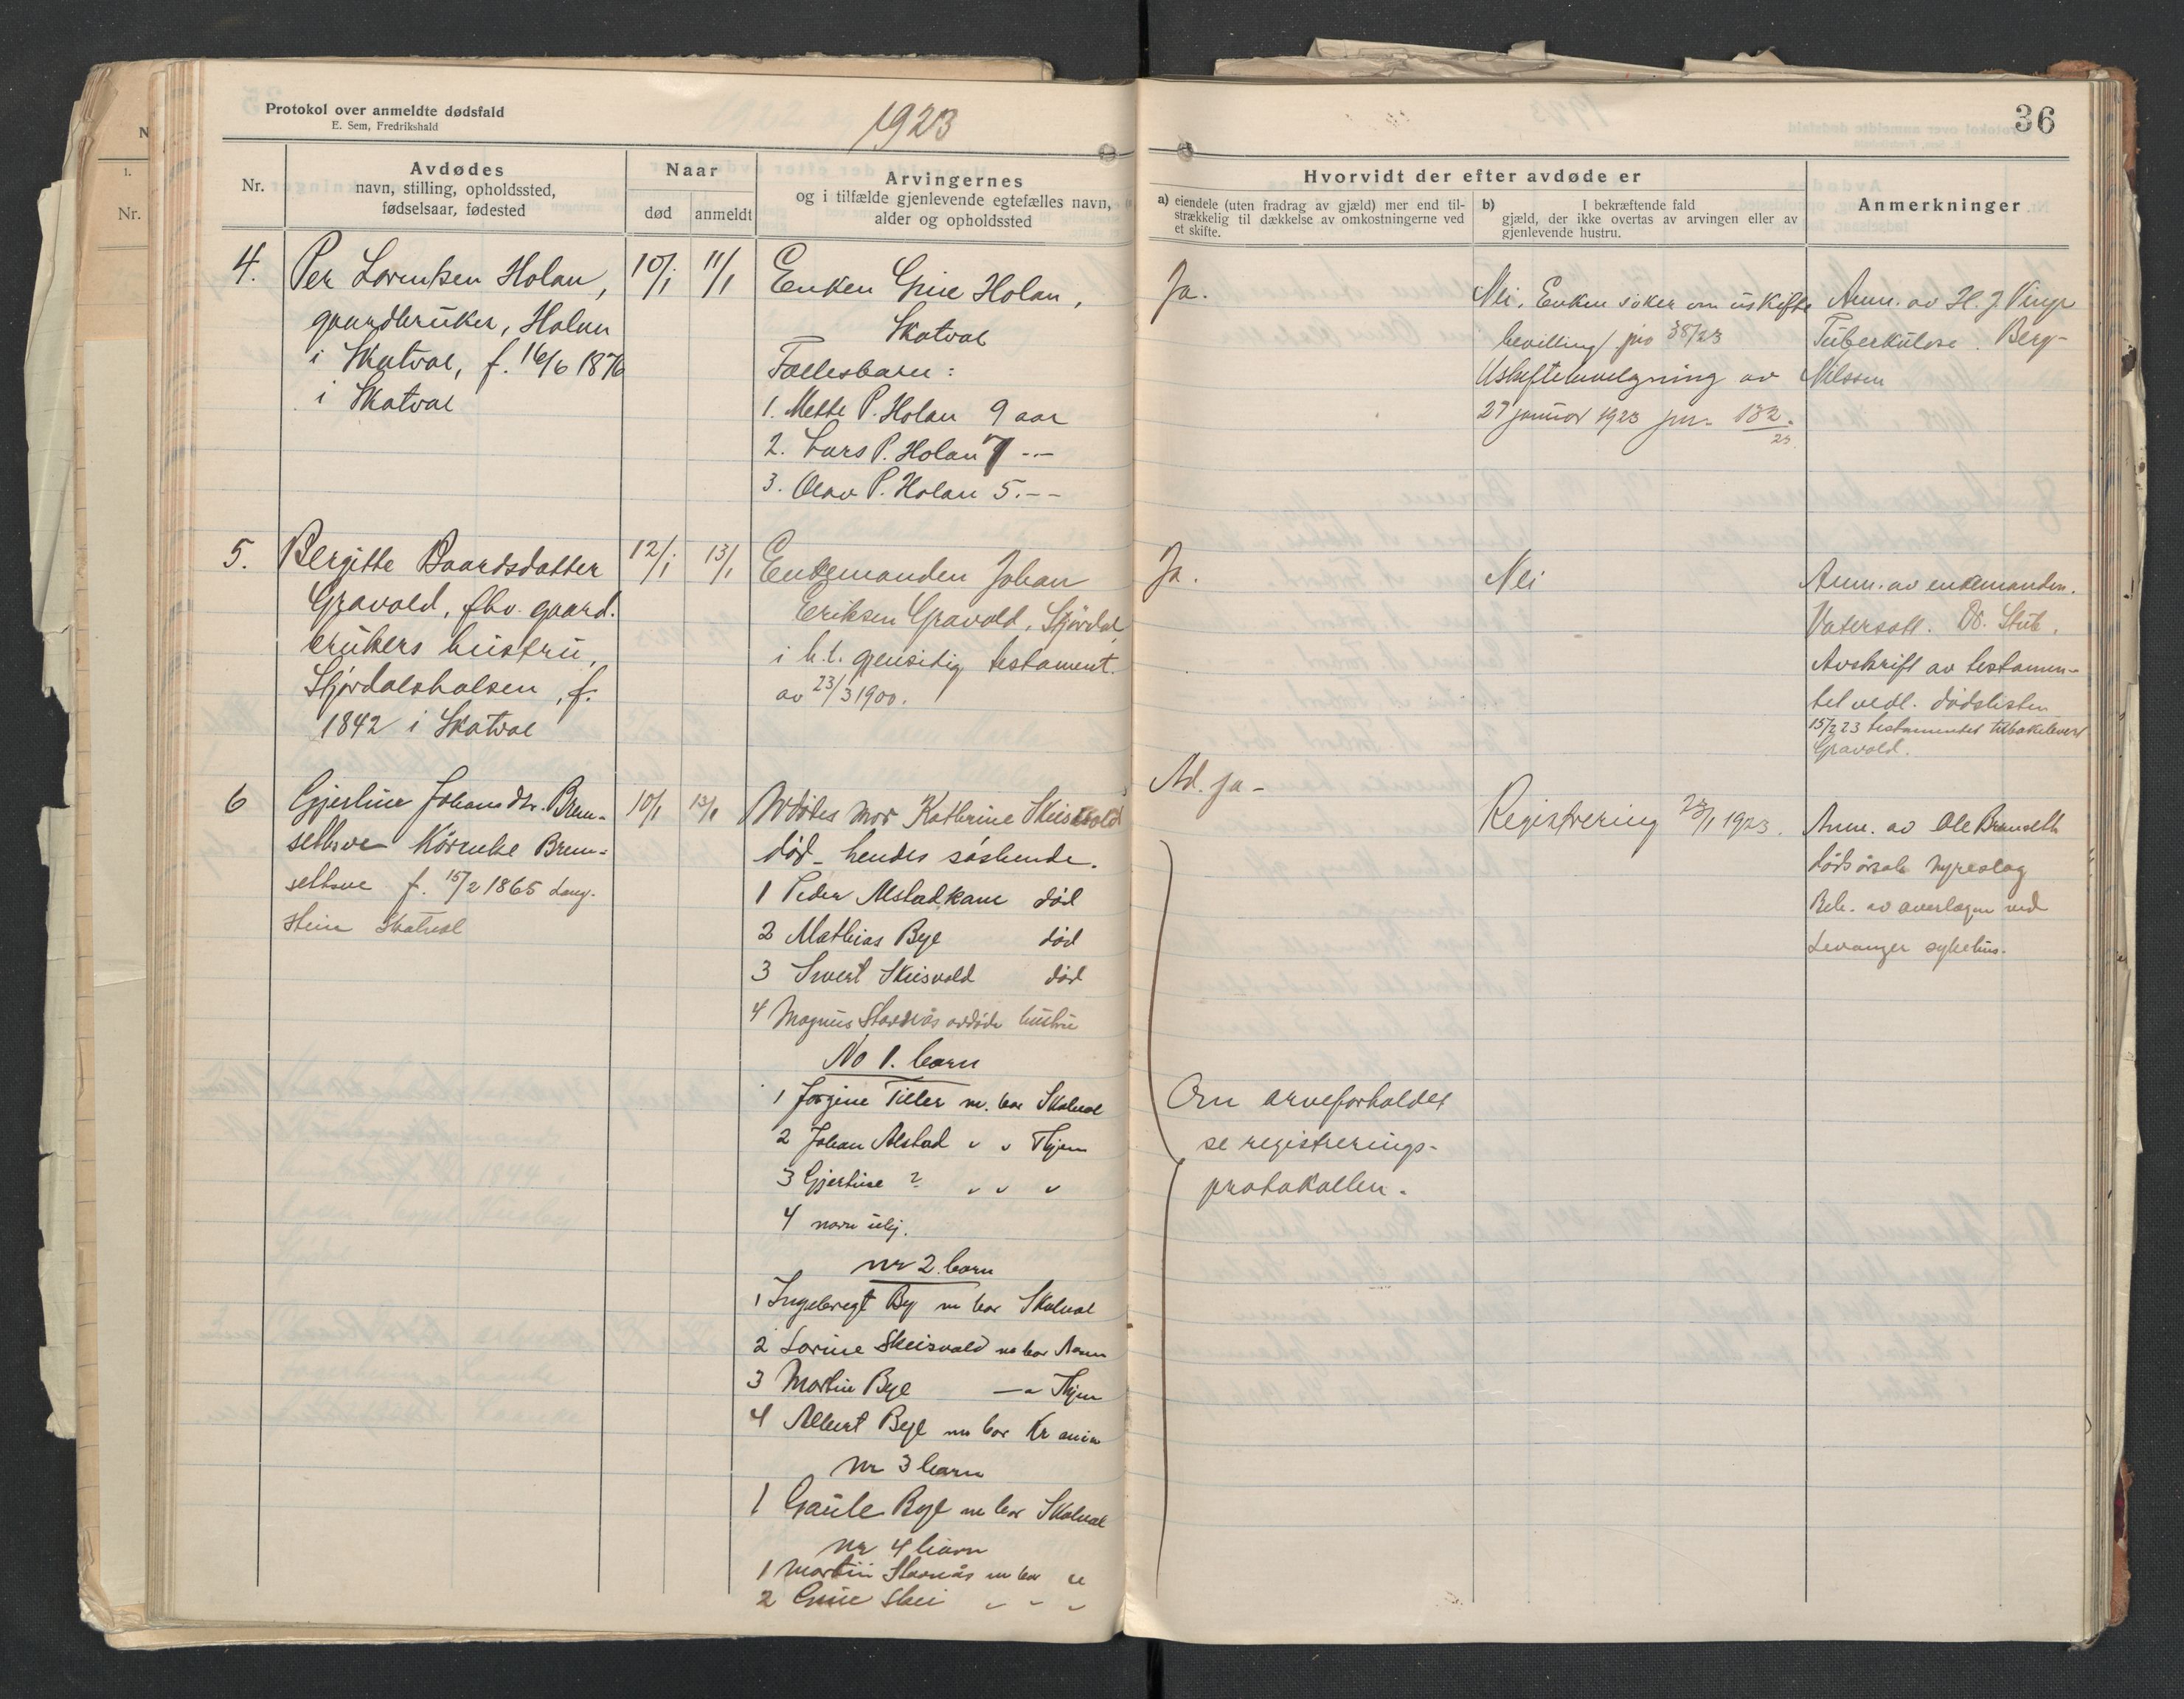 Protokol over anmeldte dødsfald
E. Sem, Fredrikshald
1923
36
Nr.
Avdødes
navn, stilling, opholdssted,
fødselsaar, fødested
Naar
død
anmeldt
Arvingernes
og i tilfælde gjenlevende egtefælles navn,
alder og opholdssted
Hvorvidt der efter avdøde er
a) eiendele (uten fradrag av gjæld) mer end til-
strækkelig til dækkelse av omkostningerne ved
et skifte.
b) I bekræftende fald
gjæld, der ikke overtas av arvingen eller av
gjenlevende hustru.
Anmerkninger
4.
Per Lorentsen Holan,
gaardbruker, Holan
i Skatval, f. 16/6 1876
i Skatval
10/1
11/1
Enken Gine Holan,
Skatval
Fællesbarn:
1. Mette P. Holan 9 aar
2. Lars P. Holan 7 --
3. Olav P. Holan 5. --
Ja.
Nei. Enken søker om uskifte
bevilling / jno 38/23
Uskiftebevilgning av
27 januar 1923 jnr. 132/23.
Anm. av H. J. Vinge
Tuberkulose. Berg-
Nilssen
5.
Bergitte Baardsdatter
Gravold, fhv. gaard.
brukers hustru,
Stjørdalshalsen, f.
1842 i Skatval
12/1
13/1
Enkemanden Johan
Eriksen Gravold, Stjørdal,
i h.t. gjensidig testament.
av 23/3 1900.
Ja.
Nei
Anm. av enkemanden.
Vatersott. Dr. Stub.
Avskrift av testamen-
tet vedl. dødslisten
15/2 23 testamentet tilbakelevert
Gravold.
6
Gjertine Johansdtr. Brem-
sethsve Kårenke Brem-
sethsve f. 15/2 1865 Lang-
stein Skatval
10/1
13/1
Avdødes mor Kathrine Skeisvold
død - hendes søskende.
1 Peder Alstadkam død
2 Mathias Bye død
3 Sivert Skeisvold død
4 Magnus Stornæs avdøde hustru
No 1. barn
1 Jørgine Tiller nu bor Skatval
2 Johan Alstad " " Thjem
3 Gjertine ? " " "
4 navn ubj.
nr 2. barn
1 Ingebregt By nu bor Skatval
2 Lorine Skeisvold nu bor Aasen
3 Martin Bye — " Thjem
4 Albert Bye nu bor Kr ania
Nr 3 barn
1 Gaute Bye nu bor Skatval
Nr 4 barn
1 Martin Stornæs nu bor "
2 Gine Skei " " "
Ad. ja -
Om arveforholdet
se registrerings-
protokollen.
Registrering 23/1 1923.
Anm. av Ole Bremseth
dødsårsak nyreslag
Beh. av overlægen ved
Levanger sykehus.